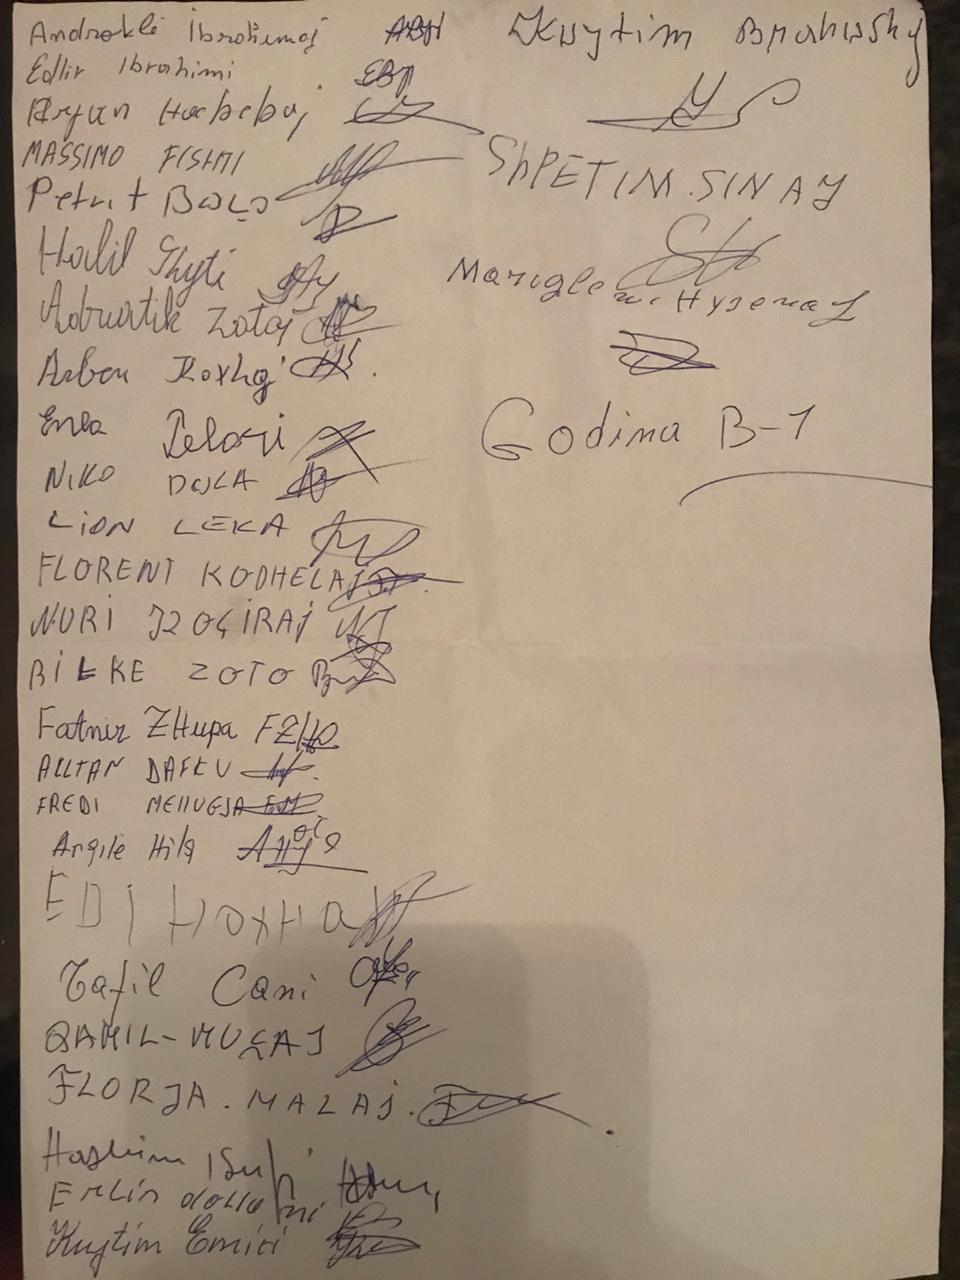 Androkli Ibrahimaj
Edlir Ibrahimi
Aryan Hoebebaj
MASSIMO FISHTI
Petrit Baço
Halil Shyti
Zotaj
Arben Hoxhaj
Enea Pelari
NIKO DOJCA
LION LEKA
FLORENT KODHELAJ
NURI IZOÇIRAJ NI
BILKE ZOTO
Fatmir ZHupa FZHO
ALLTAN DAFKU
FREDI
Argile Hila
EDI HOXHA
Tafil Cani
QAMIL-MUÇAJ
FLORJA. MALAJ.
Hashim Isufi
Erlin dollani
Kujtim Emiri
Kujtim Brahushaj
ShPETIM. SINAJ
Mariglen Hysenaj
Godina B-1